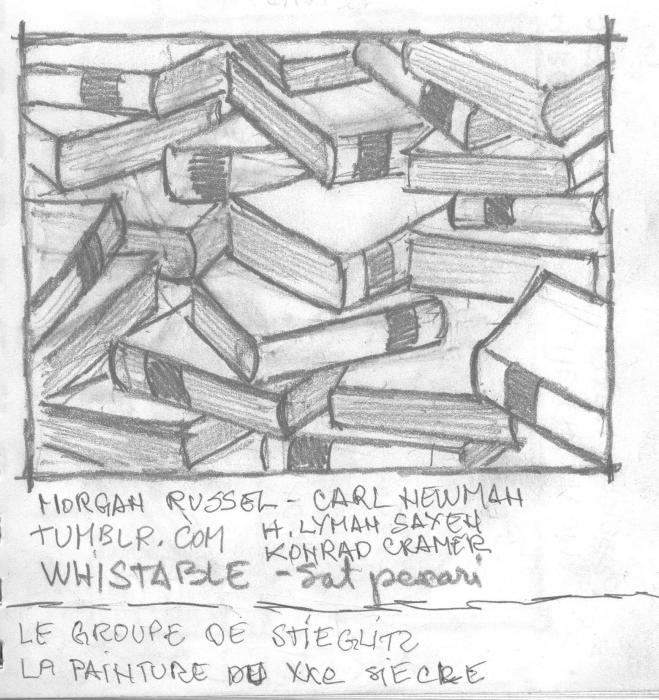 MORGAN RUSSEL - CARL NEWMAN
TUMBLR.COM H. LYMAN SAYEN
KONRAD CRAMER
WHISTABLE - Sat pecari
LE GROUPE DE STIEGLITZ
LA PAINTURE DU XXe SIECRE